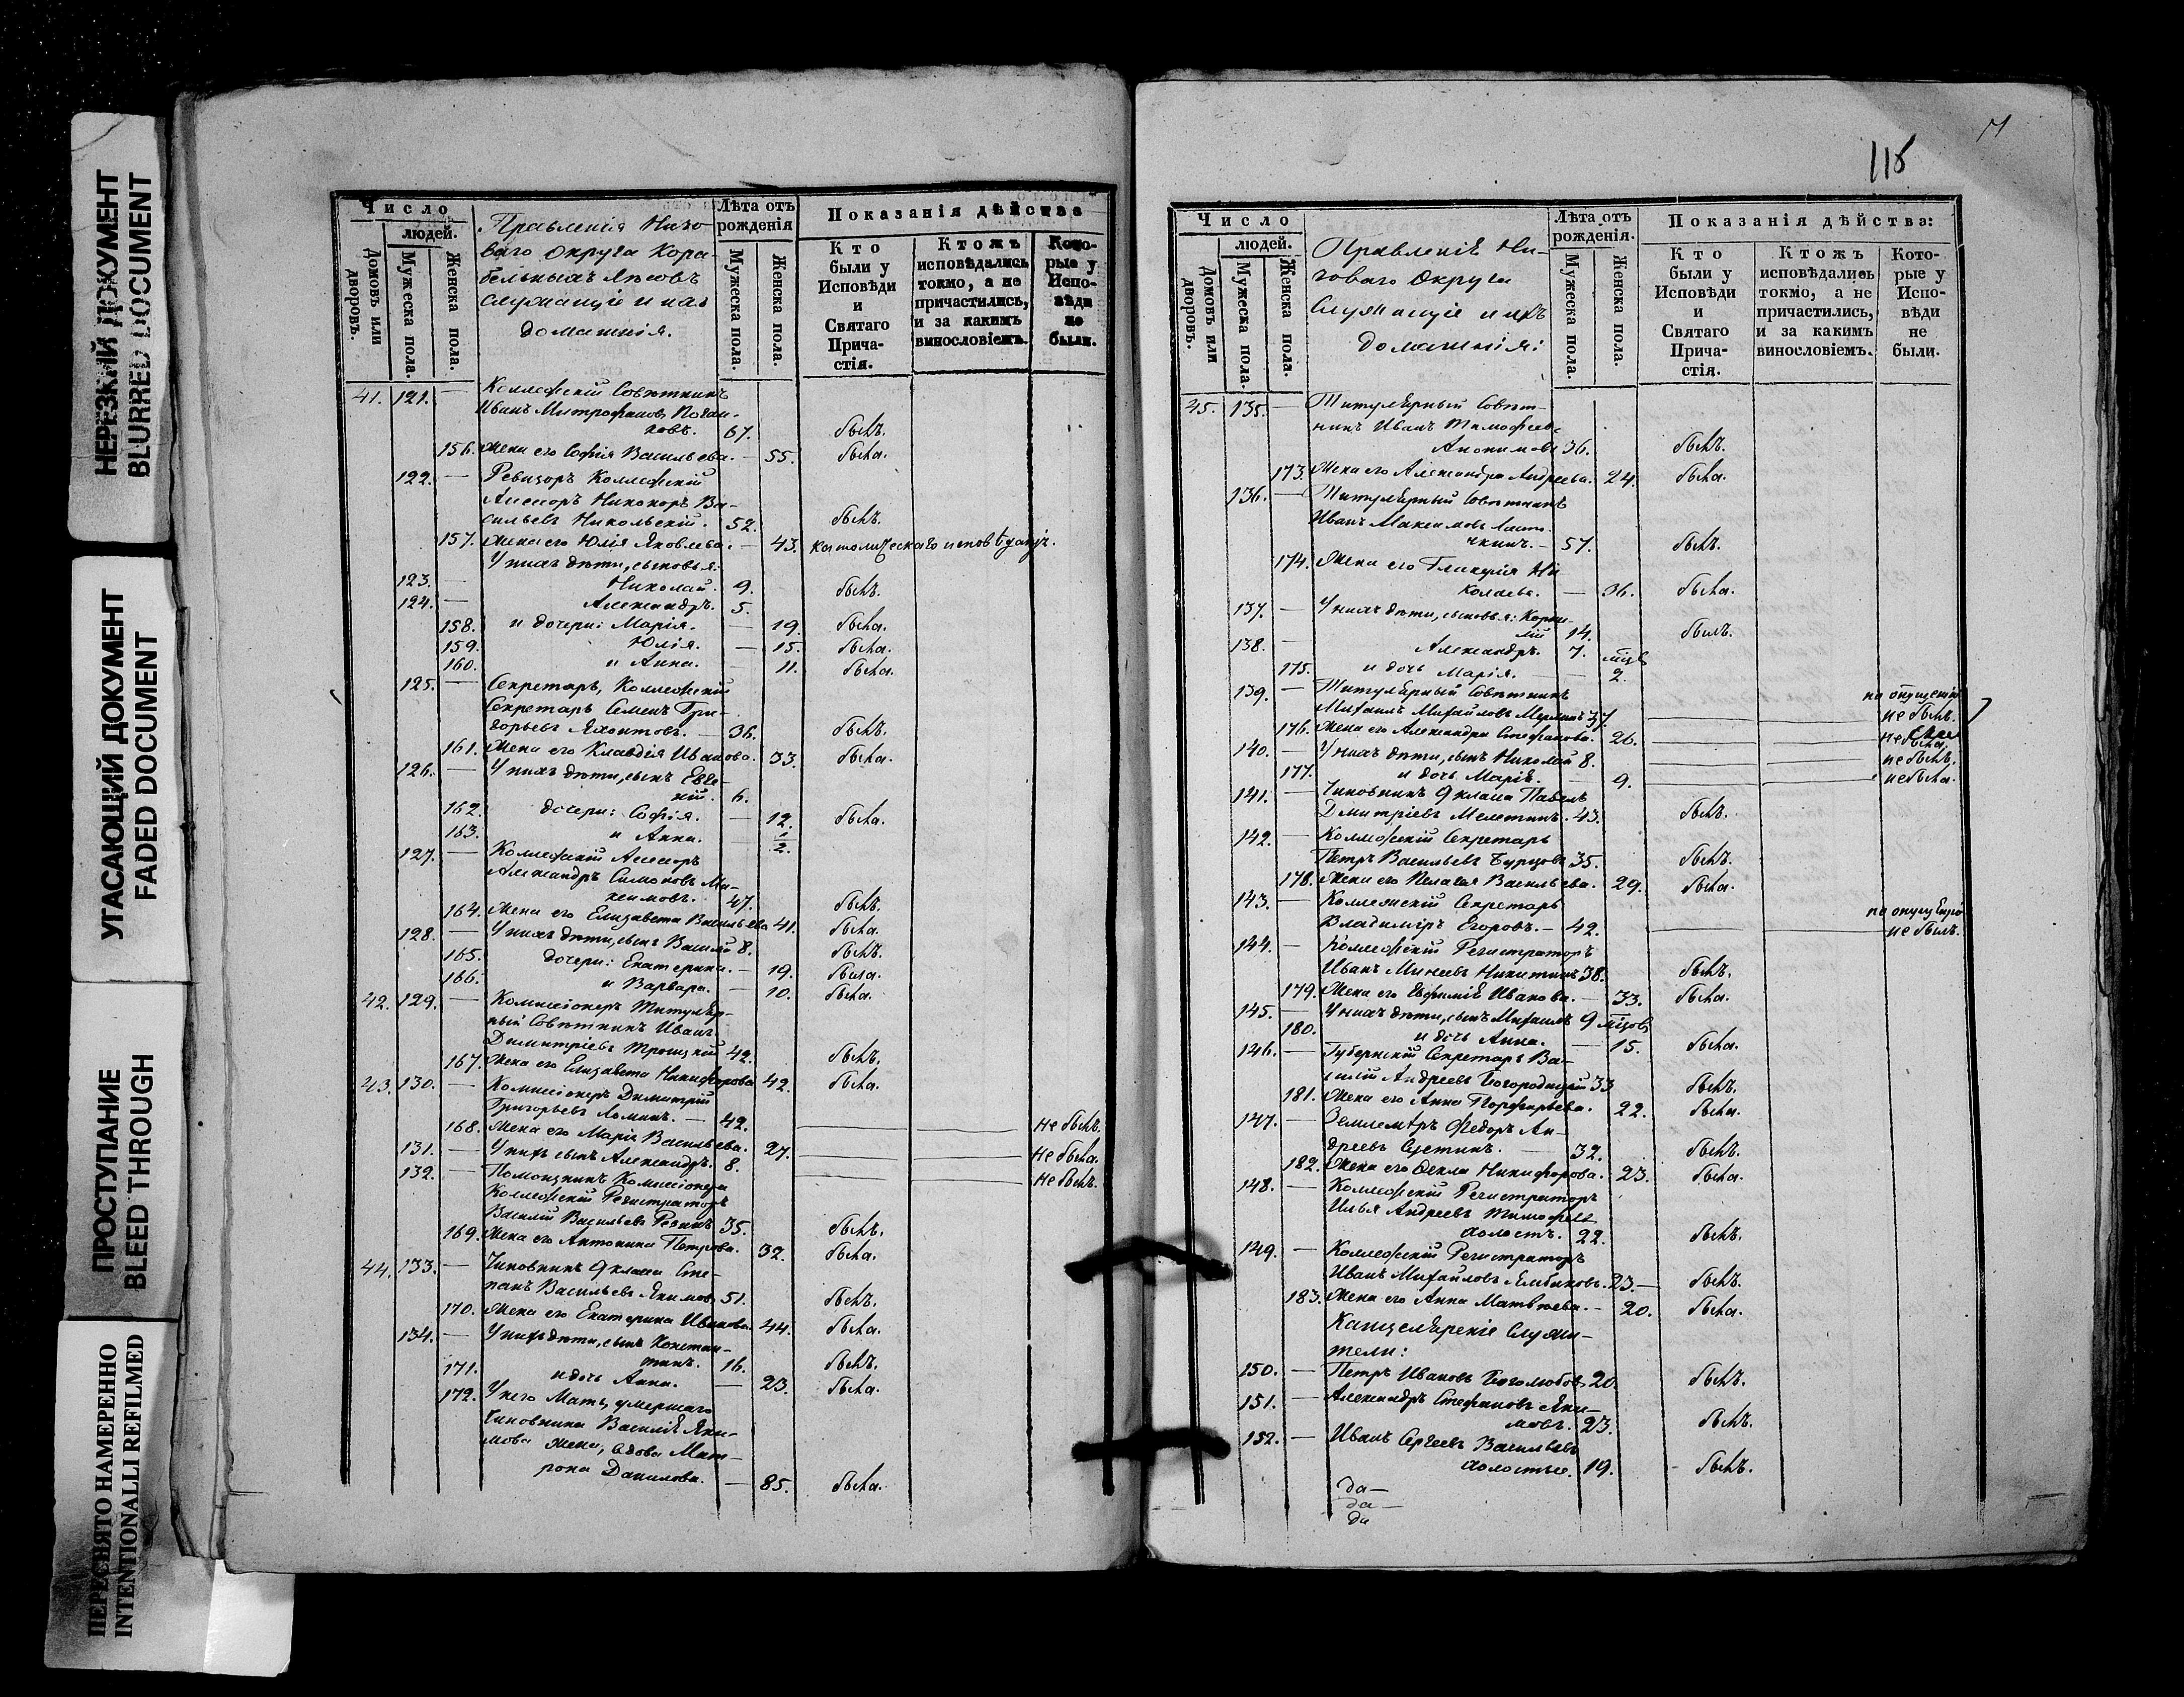 НЕРЕЗКИЙ ДОКУМЕНТ
BLURRED DOCUMENT
УГАСАЮЩИЙ ДОКУМЕНТ
FADED DOCUMENT
ПРОСТУПАНИЕ
BLEED THROUGH
ПЕРЕСНЯТО НАМЕРЕННО
INTENTIONALLI REFILMED
Число
людей.
Домовъ или дворовъ.
Мужеска пола.
Женска пола.
Правленія Низо-
ваго Округа Кора-
бельныхъ Лѣсовъ
Служащіе и ихъ
домашнія.
Лѣта отъ рожденія
Мужеска пола.
Женска пола.
Показанія дѣйства
Кто были у Исповѣди и Святаго Прича-стія.
Ктожъ исповѣдались токмо, а не причастились, и за какимъ винословіемъ.
Кото-рые у Испо-вѣди не были.
41. 121. — Коллежскій Совѣтникъ
Иванъ Митрофановъ
67. былъ.
156. Жена его Софія Васильева. — 55. была.
122. — Ревизоръ Коллежскій
Ассесоръ Никоноръ Ва-
сильевъ Никольскій. 52. былъ.
157. Жена его Юлія Яковлева. — 43. католическаго
У нихъ дѣти, сыновья:
123. — Николай. 9. былъ.
124. — Александръ. 5.
158. и дочери: Марія. — 19. была.
159. Юлія. — 15. была.
160. и Анна. — 11. была.
125. — Секретарь, Коллежскій
Секретарь Семенъ Гри-
горьевъ Яхонтовъ. — 36. былъ.
161. Жена его Клавдія Иванова. 33. была.
126. — У нихъ дѣти, сынъ Евге-
ній. 6.
162. дочери: Софія. — 12. была.
163. и Анна. — 1/2.
127. — Коллежскій Ассесоръ
Александръ Симоновъ Ма-
ксимовъ. 47. былъ.
164. Жена его Елизавета Васильева 41. была.
128. — У нихъ дѣти, сынъ Василій 8. былъ.
165. дочери: Екатерина. — 19. была.
166. и Варвара. — 10. была.
42. 129. — Коммисіонеръ Титуляр-
ный Совѣтникъ Иванъ
Димитріевъ Троицкій 42. былъ.
167. Жена его Елизавета Никифорова 42. была.
43. 130. — Коммисіонеръ Димитрій
Григорьевъ Ломинъ. — 42. не былъ.
168. Жена его Марія Васильева. 27. не была.
131. — У нихъ сынъ Александръ. 8. не былъ.
132. — Помощникъ Коммисіонера
Коллежскій Регистраторъ
Василій Васильевъ Резинъ 35. былъ.
169. Жена его Антонина Петрова. 32. была.
44. 133. — Чиновникъ 9 класа Сте-
панъ Васильевъ Якимовъ 51. былъ.
170. Жена его Екатерина Иванова. 44. была.
134. — У нихъ дѣти, сынъ Констан-
тинъ. 16. былъ.
171. и дочь Анна. — 23. была.
172. У него Мать, умершаго
Чиновника Василія Яки-
мова жена, вдова Мат-
рона Данилова. — 85. была.
118
Число
людей.
Домовъ или дворовъ.
Мужеска пола.
Женска пола.
Правленія Ни-
зоваго Округа
Служащіе и ихъ
домашнія:
Лѣта отъ рожденія.
Мужеска пола.
Женска пола.
Показанія дѣйства:
Кто были у Исповѣди и Святаго Прича-стія.
Ктожъ исповѣдались токмо, а не причастились, и за какимъ винословіемъ.
Кото-рые у Испо-вѣди не были.
45. 135. — Титулярный Совѣт-
никъ Иванъ Тимофеевъ
36. былъ.
173. Жена его Александра Андреева. 24. была.
136. — Титулярный Совѣтникъ
Иванъ Максимовъ Ласто-
чкинъ. — 57. былъ.
174. Жена его Гликерія Ни-
колаева. — 36. была.
137. — У нихъ дѣти, сыновья: Корни-
лій 14. былъ.
138. — Александръ. 7.
175. и дочь Марія. — 2. мѣс
139. — Титулярный Совѣтникъ по опущенію
Михаилъ Михайловъ 37. не былъ.
176. Жена его Александра Стефанова. 26. не была.
140. — У нихъ дѣти, сынъ Николай 8. не былъ.
177. и дочь Марія. — 9. не была.
141. — Чиновникъ 9 класа Павелъ
Дмитріевъ Мелетинъ. 43. былъ.
142. — Коллежскій Секретарь
Петръ Васильевъ Бурцовъ 35. былъ.
178. Жена его Пелагея Васильева. 29. была.
143. — Коллежскій Секретарь по опущенію
Владиміръ Егоровъ. — 42. не былъ.
144. — Коллежскій Регистраторъ
Иванъ Минеевъ Никитинъ 38. былъ.
179. Жена его Евфимія Иванова. — 33. была.
145. — У нихъ дѣти, сынъ Михаилъ 9 мѣсцовъ
180. и дочь Анна. — 15. была.
146. — Губернскій Секретарь Ва-
силій Андреевъ Богородицкій 33 былъ.
181. Жена его Анна Порфирьева. 22. была.
147. — Землемѣръ Федоръ Ан-
древъ Сустинъ. — 32. былъ.
182. Жена его Фекла Никифорова. 23. была.
148. — Коллежскій Регистраторъ
Илья Андреевъ
холостъ. 22. былъ.
149. — Коллежскій Регистраторъ
Иванъ Михайловъ Ямбиковъ. 23 — былъ.
183. Жена его Анна Матвѣева. — 20. была.
Канцелярскіе Служи-
тели:
150. — Петръ Ивановъ Боголюбовъ 20. былъ.
151. — Александръ Стефановъ Яки-
мовъ. 23. былъ.
152. — Иванъ Сергеевъ Васильевъ
холостые. 19. былъ.